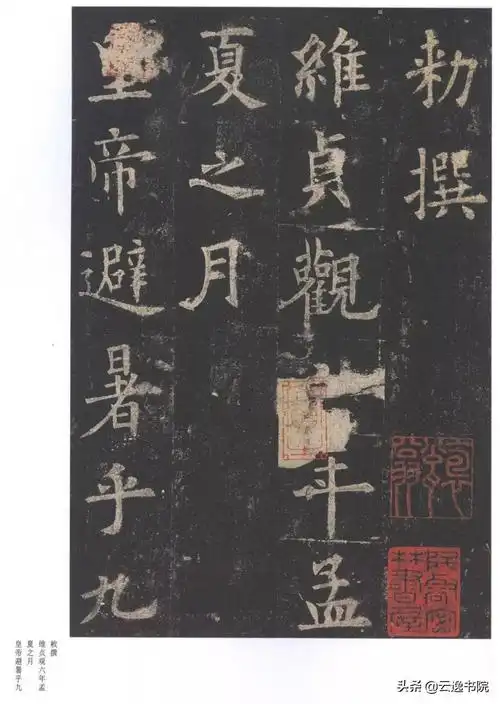 勅撰
維貞觀六年孟
夏之月
皇帝避暑乎九
敕撰
维贞观六年孟
夏之月
皇帝避暑乎九
头条 @云逸书院